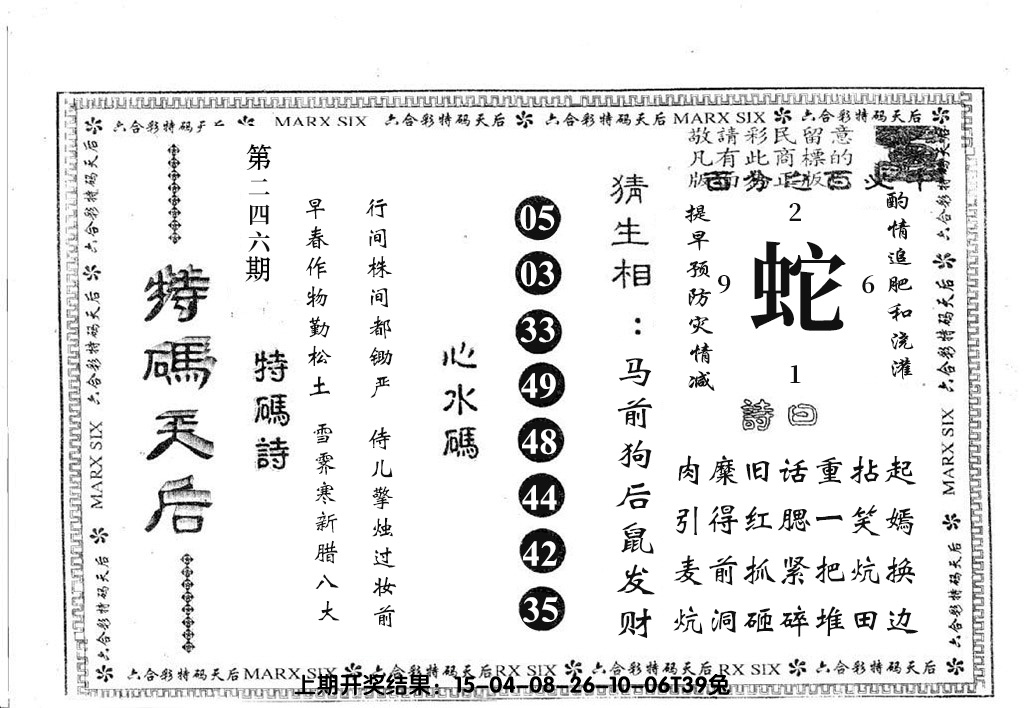 六合彩特码天后 MARX SIX 六合彩特码天后 六合彩特码天后 MARX SIX 六合彩特码天后
敬請彩民留意
凡有此商標的
版面為正版
酌情追肥和浇灌
提早预防灾情减
2
9 蛇 6
1
曰詩
起嫣换边
拈笑炕田
重一把堆
话腮紧碎
旧红抓砸
糜得前洞
肉引麦炕
猜生相：马前狗后鼠发财
05
03
33
49
48
44
42
35
心水碼
行间株间都锄严 侍儿擎烛过妆前
早春作物勤松土 雪霁寒新腊八大
第二四六期
特碼詩
特碼天后
六合彩特码天后 MARX SIX 六合彩特码天后
六合彩特码天后 MARX SIX 六合彩特码天后
六合彩特码天后MARX SIX 六合彩特码天后RX SIX 六合彩特码天后RX SIX 六合彩特码天后
上期开奖结果：15-04-08-26-10-06T39兔